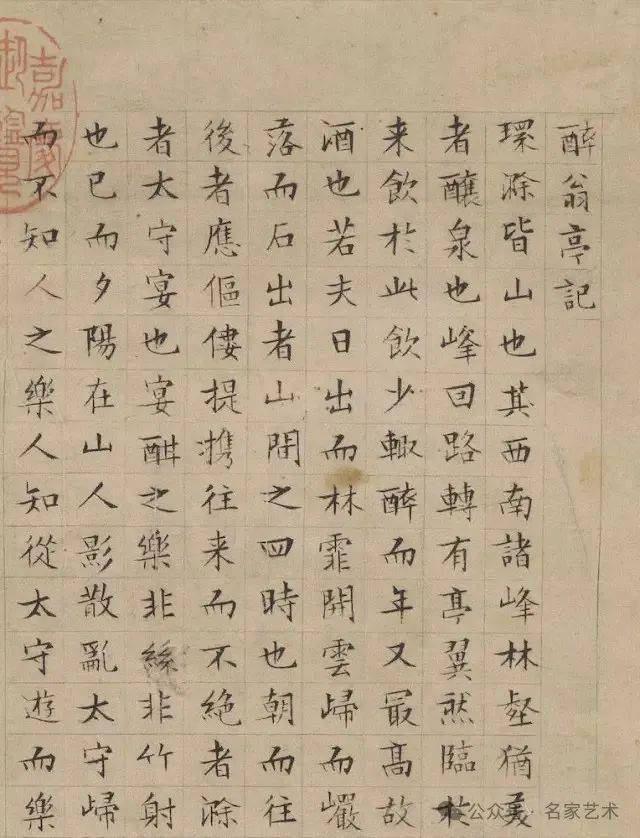 醉翁亭記
環滁皆山也其西南諸峰林壑猶美
者釀泉也峰回路轉有亭翼然臨於
来飲於此飲少輒醉而年又最高故
酒也若夫日出而林霏開雲歸而巖
落而石出者山間之四時也朝而往
後者應傴僂提携往来而不絶者滁
者太守宴也宴酣之樂非絲非竹射
也已而夕陽在山人影散亂太守歸
而不知人之樂人知從太守遊而樂
公众号 · 名家艺术